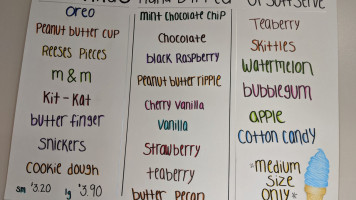 Hand Dipped
of Soft Serve
Oreo
Peanut butter cup
Reeses Pieces
m & m
Kit - Kat
butter finger
Snickers
cookie dough
sm $3.20 lg $3.90
mint chocolate chip
Chocolate
black Raspberry
Peanut butter ripple
Cherry Vanilla
Vanilla
Strawberry
teaberry
butter Pecan
Teaberry
Skittles
watermelon
bubblegum
apple
cotton candy
*medium
size
only*